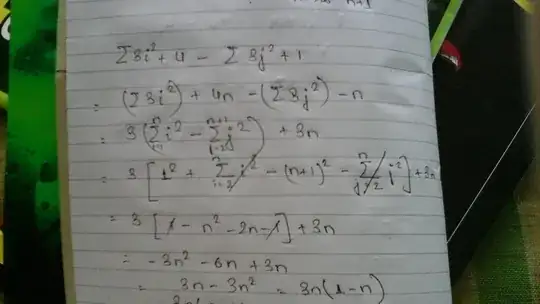 Σ3i² + 4 - Σ3j² + 1
= (Σ3i²) + 4n - (Σ3j²) - n
= 3(Σ_{i=1}^{n} i² - Σ_{j=2}^{n+1} j²) + 3n
= 3[1² + Σ_{i=2}^{n} i² - (n+1)² - Σ_{j=2}^{n} j²] + 3n
= 3[1 - n² - 2n - 1] + 3n
= -3n² - 6n + 3n
= 3n - 3n² = 3n(1-n)